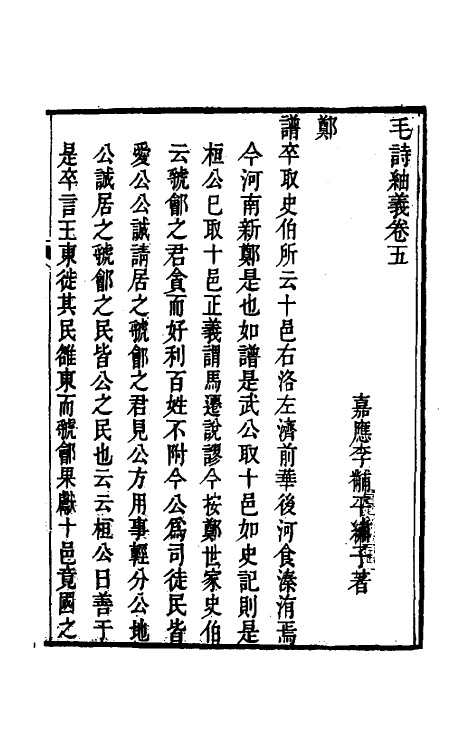 毛詩紬義卷五
嘉應李黼平繡子著
鄭
譜卒取史伯所云十邑右洛左濟前華後河食溱洧焉
今河南新鄭是也如譜是武公取十邑如史記則是
桓公已取十邑正義謂馬遷說謬今按鄭世家史伯
云虢鄶之君貪而好利百姓不附今公爲司徒民皆
愛公公誠請居之虢鄶之君見公方用事輕分公地
公誠居之虢鄶之民皆公之民也云云桓公曰善于
是卒言王東徙其民雒東而虢鄶果獻十邑竟國之